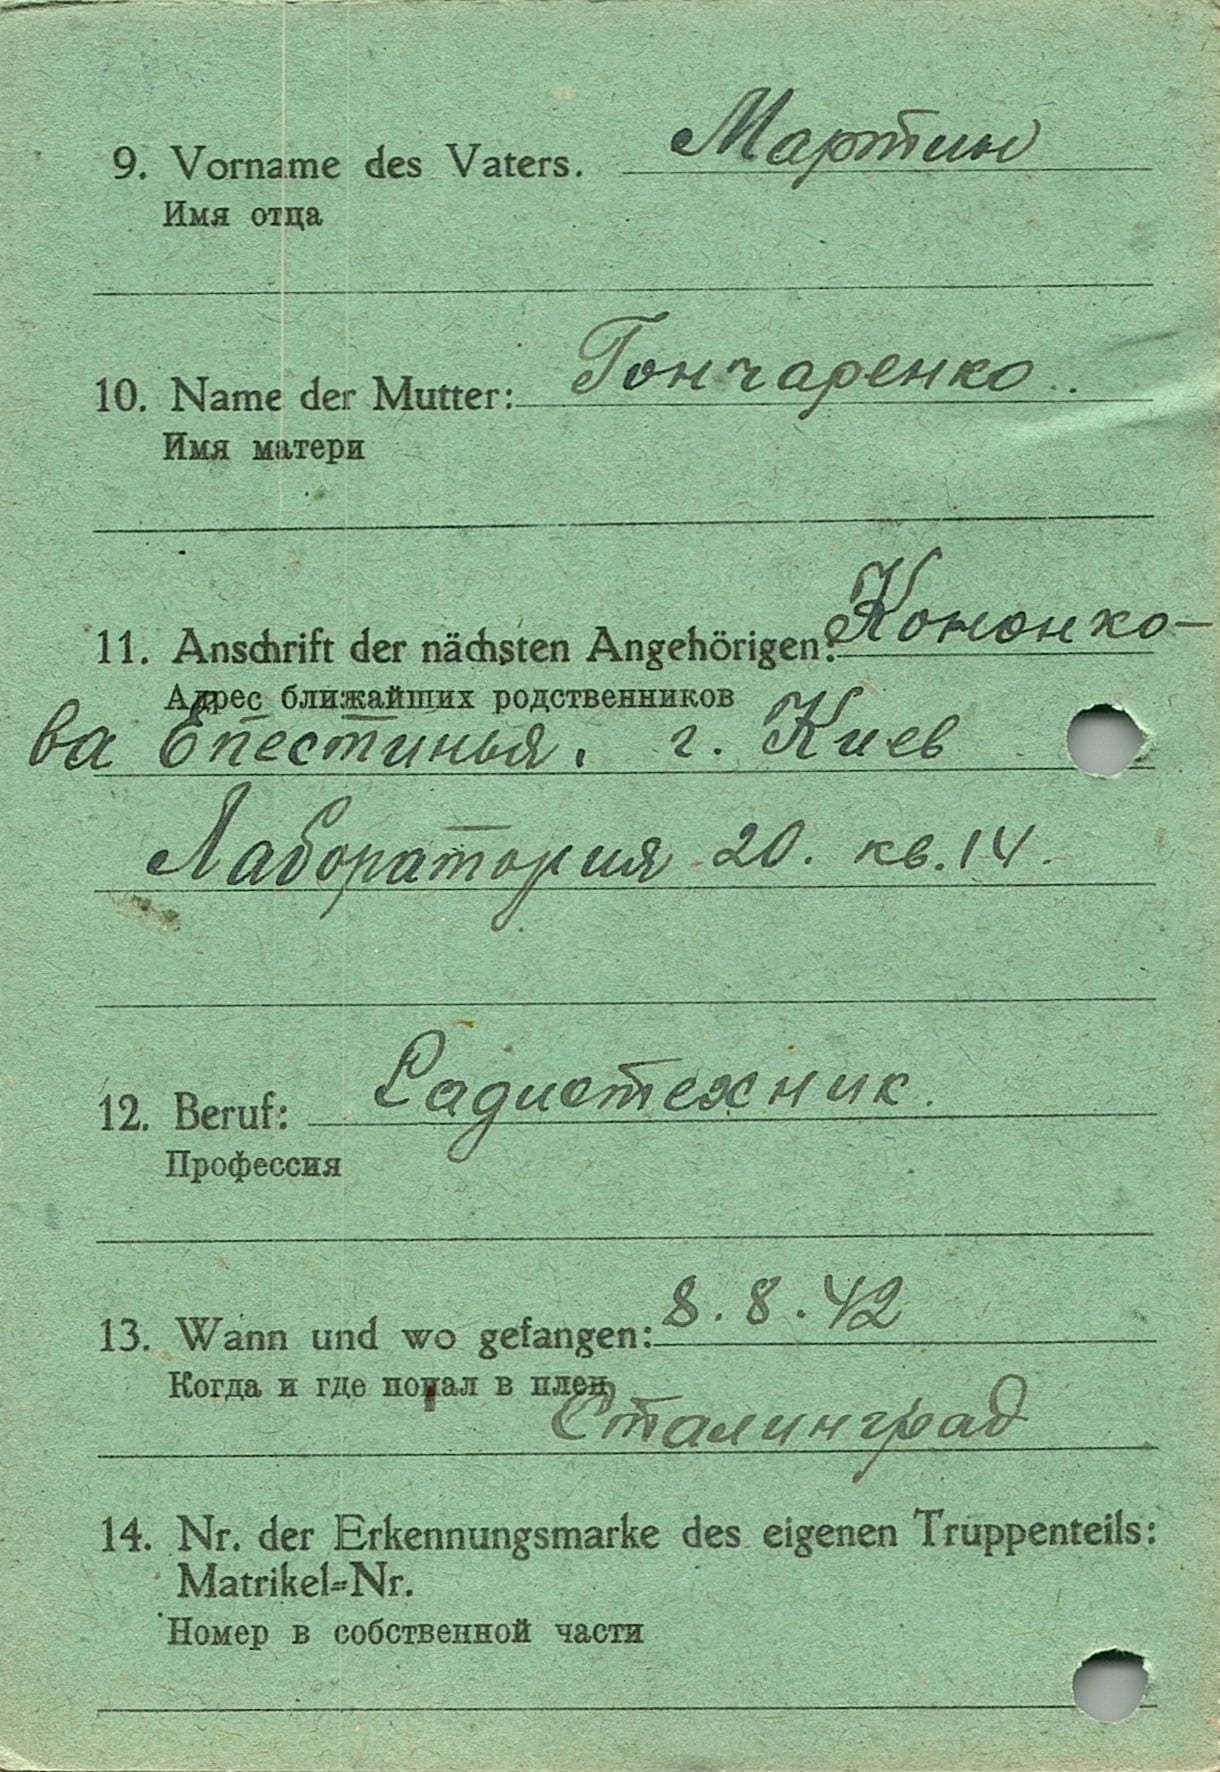 9. Vorname des Vaters. Мартин
Имя отца
10. Name der Mutter: Гончаренко.
Имя матери
11. Anschrift der nächsten Angehörigen: Кононко-
Адрес ближайших родственников
ва Епестинья. г. Киев
Лаборатория 20. кв. 14.
12. Beruf: Радиотехник.
Профессия
13. Wann und wo gefangen: 8. 8. 42
Когда и где попал в плен
Сталинград
14. Nr. der Erkennungsmarke des eigenen Truppenteils:
Matrikel=Nr.
Номер в собственной части